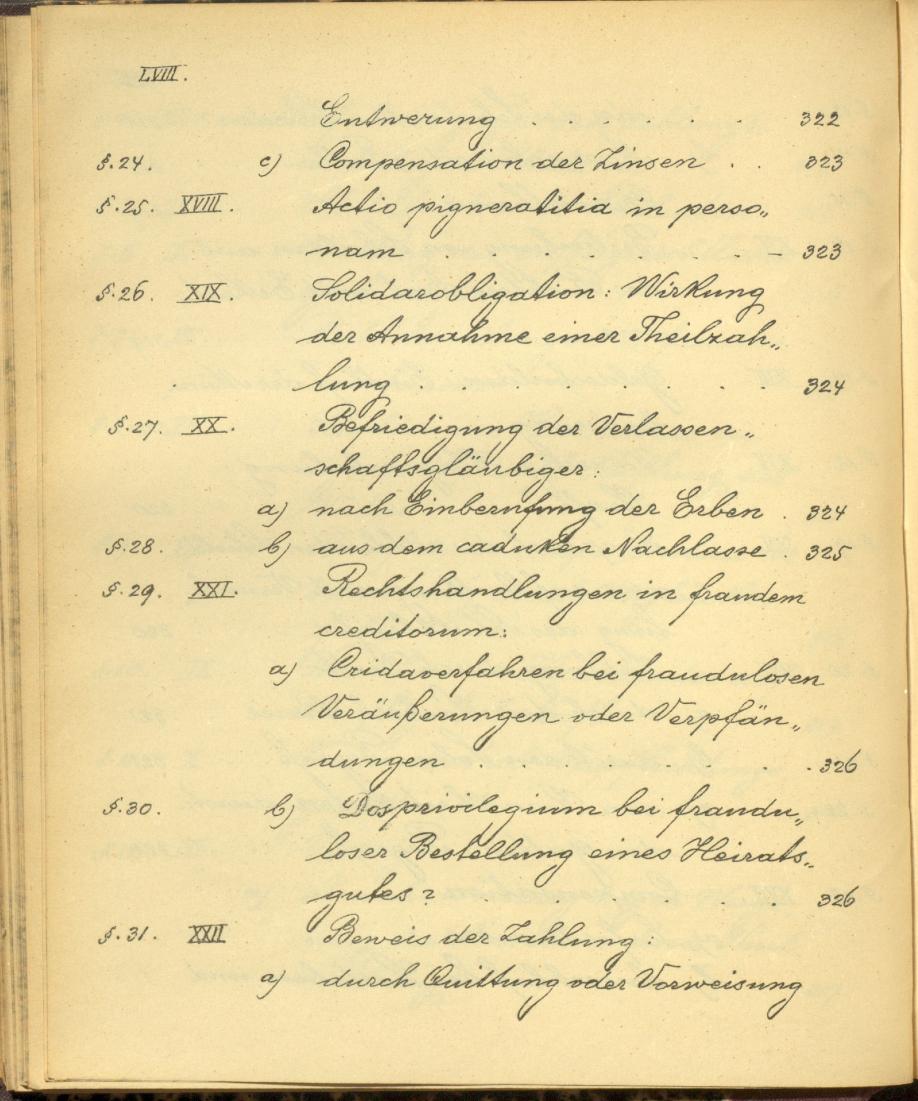 LVIII.
Entwerung . . . . . . 322
§.24. c) Compensation der Zinsen . . 323
§.25. XVIII. Actio pigneratitia in perso„
nam . . . . . . . – 323
§.26. XIX. Solidarobligation: Wirkung
der Annahme einer Theilzah„
lung . . . . . 324
§.27. XX. Befriedigung der Verlassen„
schaftsgläubiger:
a) nach Einberufung der Erben . 324
§.28. b) aus dem caduken Nachlasse . 325
§.29. XXI. Rechtshandlungen in fraudem
creditorum:
a) Cridaverfahren bei fraudulosen
Veräußerungen oder Verpfän„
dungen . . . . . . 326
§.30. b) Dosprivilegium bei fraudu„
loser Bestellung eines Heirats„
gutes? . . . . . 326
§.31. XXII Beweis der Zahlung:
a) durch Quittung oder Vorweisung